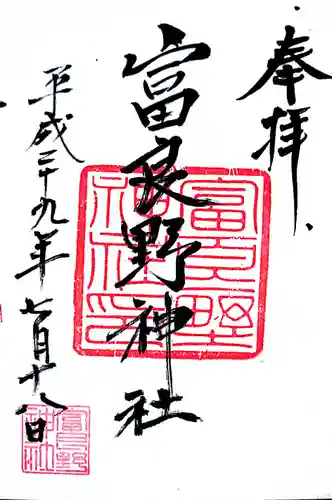 奉拝
富良野神社
平成二十九年七月十八日
富良野神社印
富良野神社